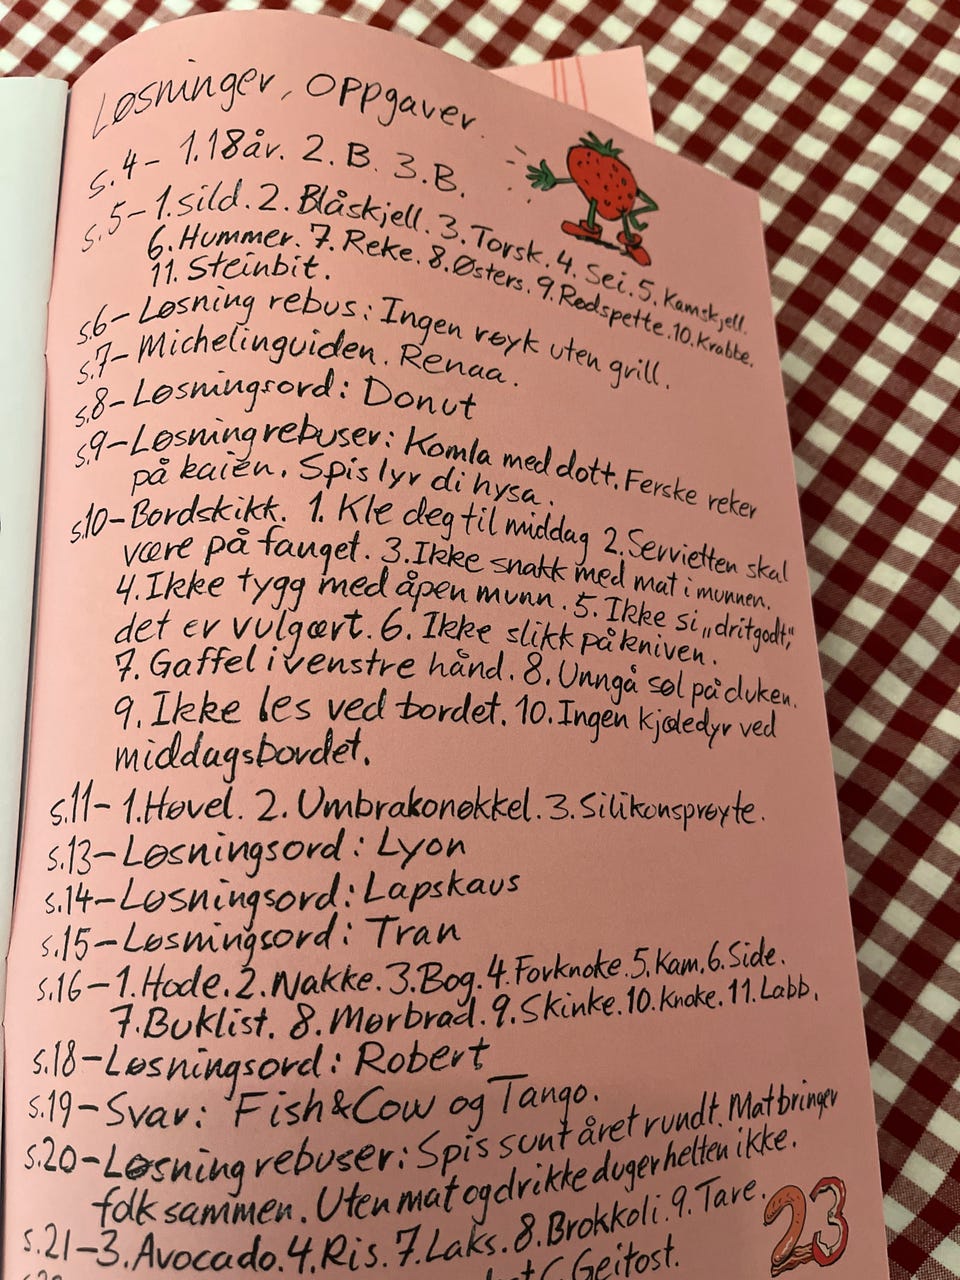 Løsninger, oppgaver.
s.4- 1.18år. 2. B. 3.B.
s.5-1.sild. 2. Blåskjell. 3. Torsk. 4. Sei. 5. Kamskjell.
6. Hummer. 7. Reke. 8. Østers. 9. Rødspette. 10. Krabbe.
11. Steinbit.
s6- Løsning rebus: Ingen røyk uten grill.
s.7- Michelinguiden. Renaa.
s.8-Løsningsord: Donut
s.9-Løsning rebuser: Komla med dott. Ferske reker
på kaien. Spis lyr di nysa.
s.10-Bordskikk. 1. Kle deg til middag 2. Servietten skal
være på fanget. 3. Ikke snakk med mat i munnen.
4. Ikke tygg med åpen munn. 5. Ikke si „dritgodt,“
det er vulgært. 6. Ikke slikk på kniven.
7. Gaffel i venstre hånd. 8. Unngå søl på duken.
9. Ikke les ved bordet. 10. Ingen kjæledyr ved
middagsbordet.
s.11- 1. Høvel. 2. Umbrakonøkkel. 3. Silikonsprøyte.
s.13-Løsningsord: Lyon
s.14-Løsningsord: Lapskaus
s.15-Løsningsord: Tran
s.16-1. Hode. 2. Nakke. 3. Bog. 4. Forknoke. 5. Kam. 6. Side.
7. Buklist. 8. Mørbrad. 9. Skinke. 10. Knoke. 11. Labb.
s.18-Løsningsord: Robert
s.19-Svar: Fish&Cow og Tango.
s.20-Løsning rebuser: Spis sunt året rundt. Mat bringer
folk sammen. Uten mat og drikke duger helten ikke.
s.21-3. Avocado. 4. Ris. 7. Laks. 8. Brokkoli. 9. Tare.
Geitost.
23